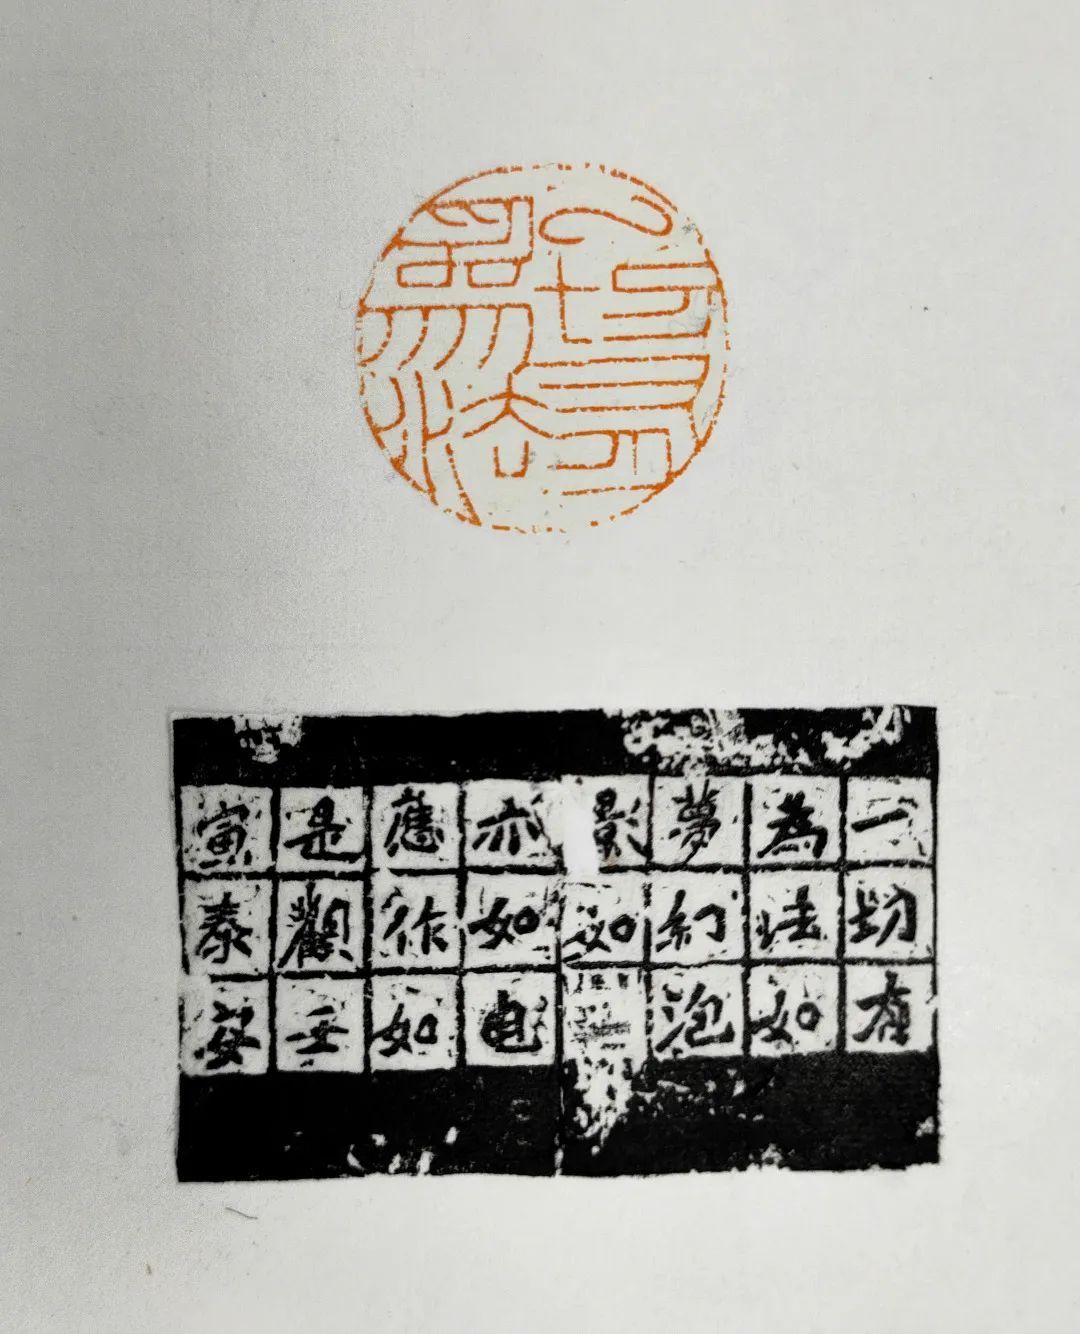 一切有
為法如
夢幻泡
影如
亦如电
應作如
是觀壬
寅泰安